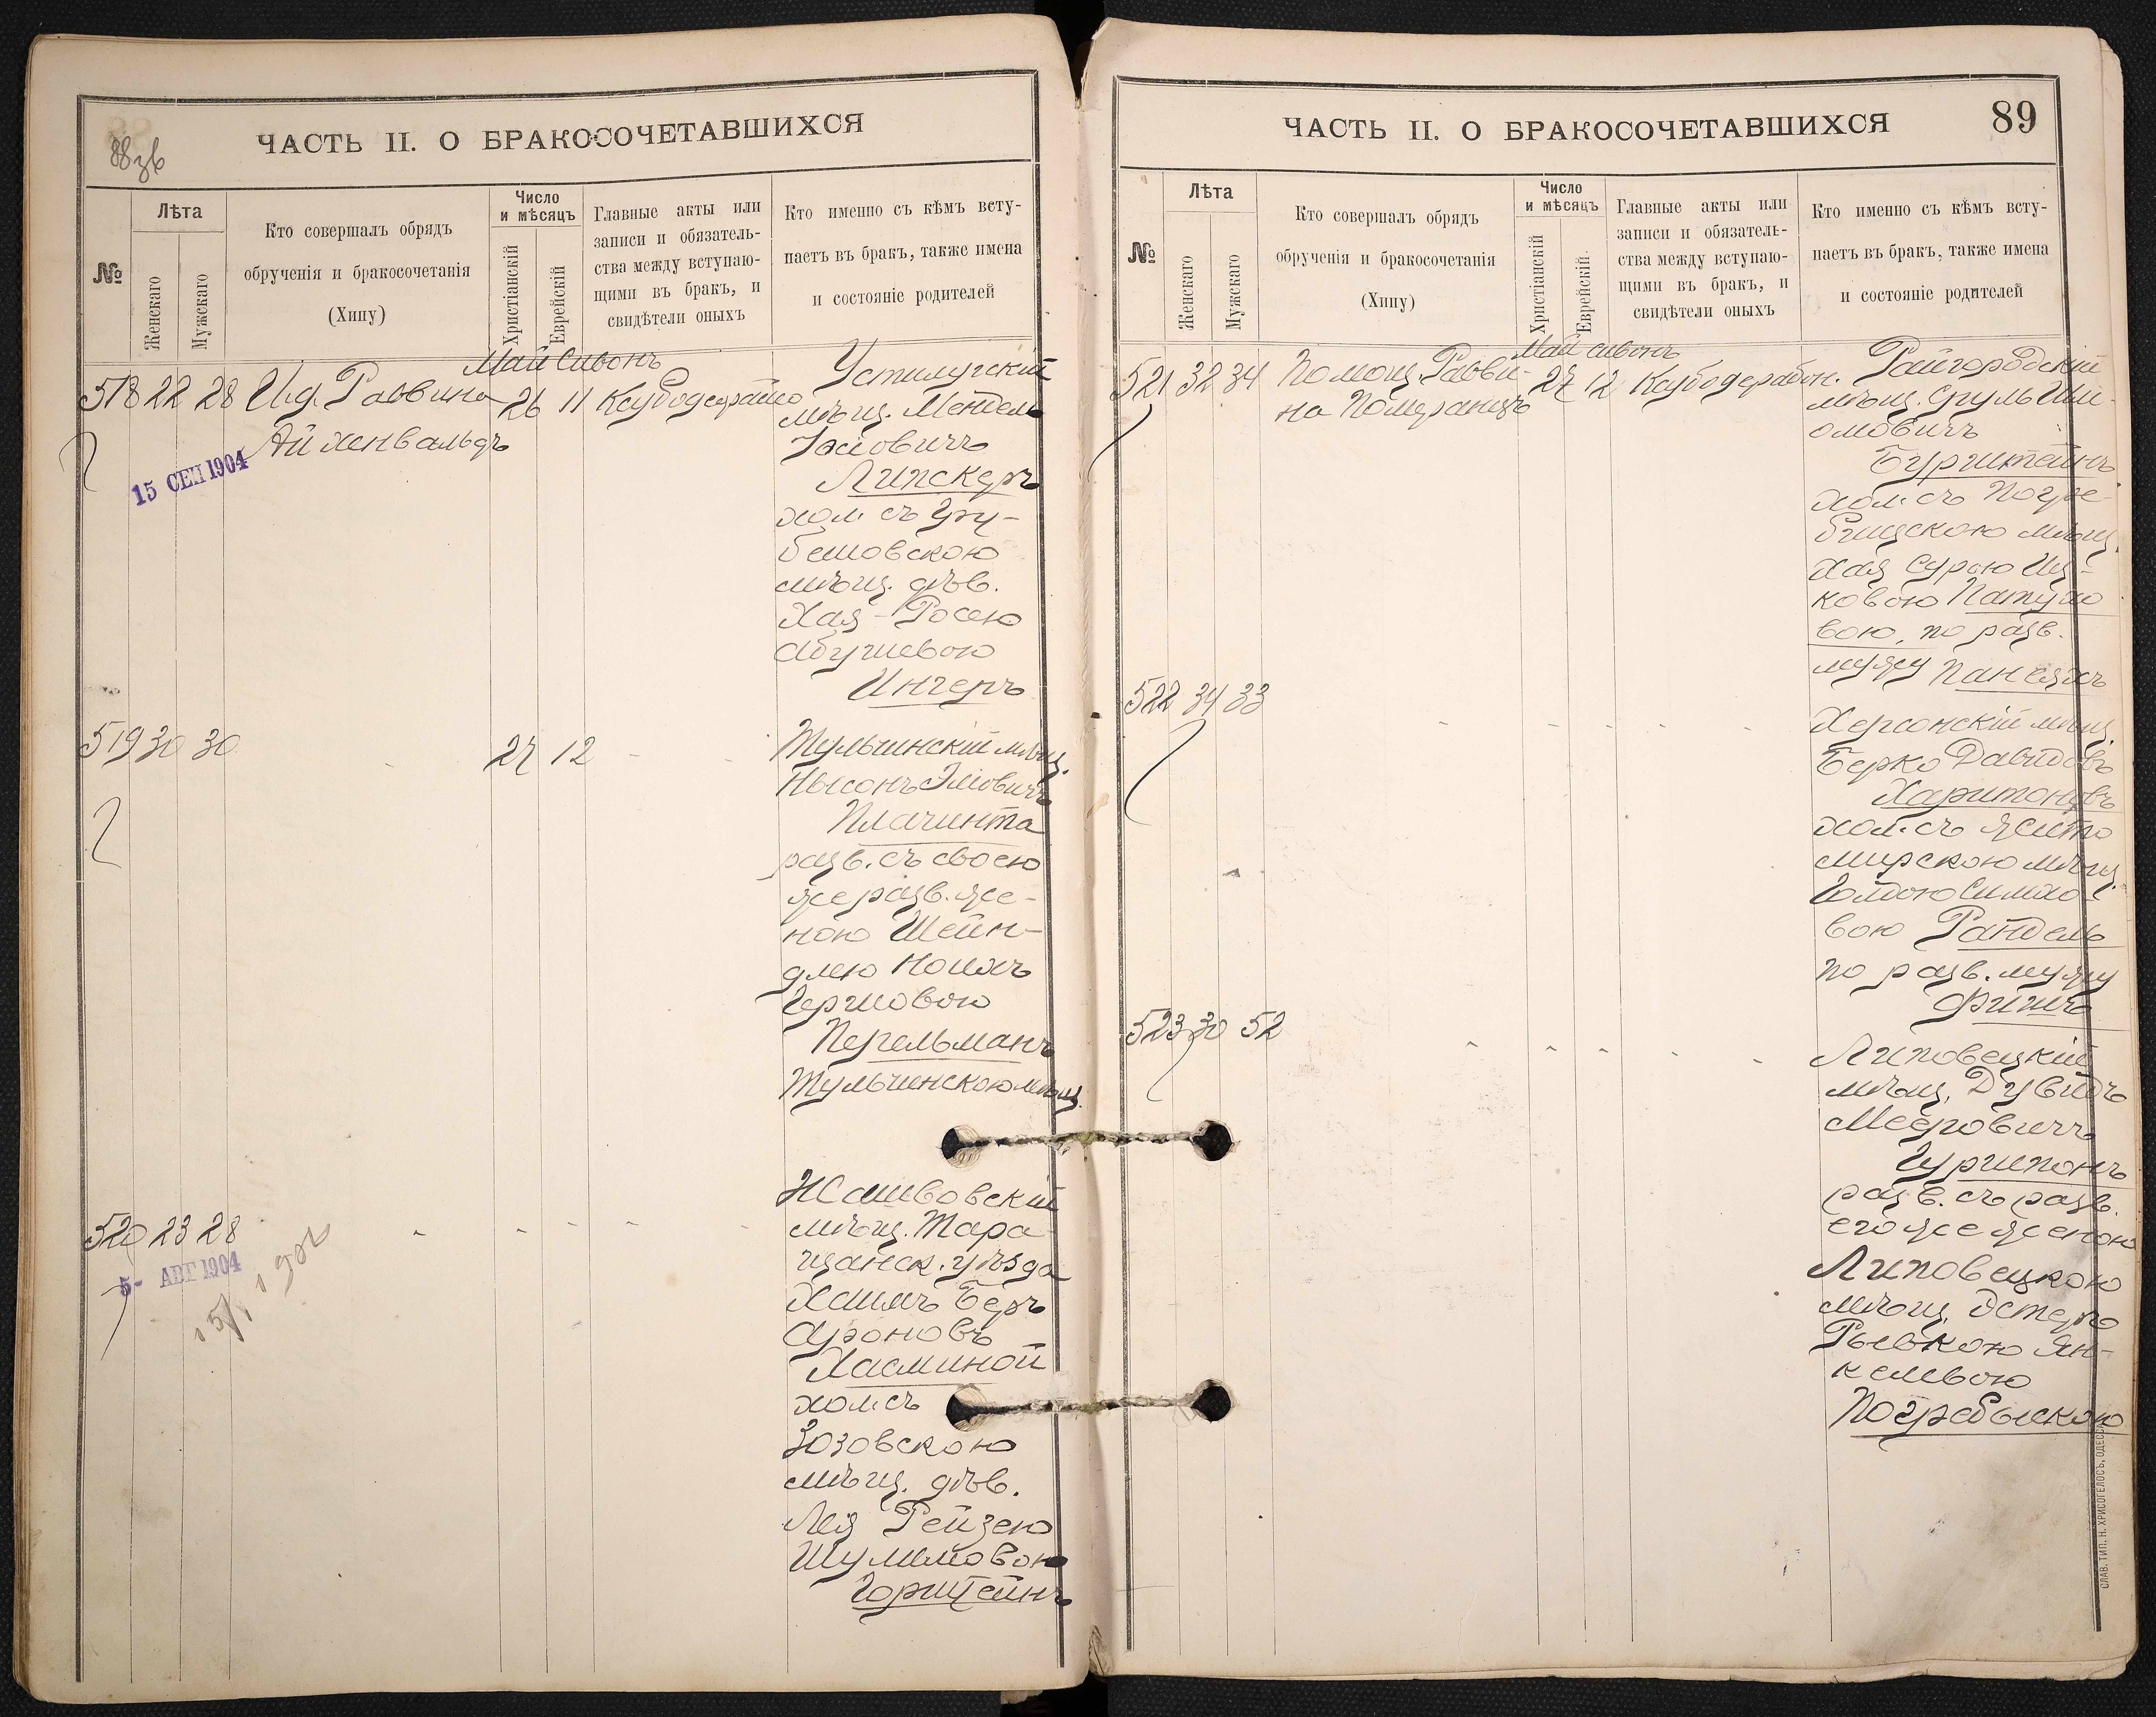 88 зв
ЧАСТЬ II. О БРАКОСОЧЕТАВШИХСЯ
№
Лѣта
Женскаго
Мужскаго
Кто совершалъ обрядъ
обрученія и бракосочетанія
(Хипу)
Число
и мѣсяцъ
Христіанскій
Еврейскій
Главные акты или
записи и обязатель-
ства между вступаю-
щими въ бракъ, и
свидѣтели оныхъ
Кто именно съ кѣмъ всту-
паетъ въ бракъ, также имена
и состояніе родителей
Май Сивонъ
518 22 28 И.д. Раввина 26 11
Айхенвальдъ
15 СЕН 1904
Устилугскій
мѣщ. Мендель
Іосіовичъ
Липскеръ
хол. съ Гру-
бешовскою
мѣщ. дѣв.
Хая-Росею
Абушевою
Ингеръ
519 30 30 - 27 12 -
Тульчинскій мѣщ.
Нысонъ Эліовичъ
Плачинта
разв. съ своею
же разв. же-
ною Шейн-
длею Нохимъ
Гершовою
Перельманъ
Тульчинскою мѣщ.
520 23 28 - - - - -
5- АВГ 1904
Жашковскій
мѣщ. Тара-
щанск. уѣзда
Хаимъ Беръ
Ароновъ
Хасминой
хол. съ
Зозовскою
мѣщ. дѣв.
Лея Рейзею
Шулимовою
Горштейнъ
89
ЧАСТЬ II. О БРАКОСОЧЕТАВШИХСЯ
№
Лѣта
Женскаго
Мужскаго
Кто совершалъ обрядъ
обрученія и бракосочетанія
(Хипу)
Число
и мѣсяцъ
Христіанскій
Еврейскій.
Главные акты или
записи и обязатель-
ства между вступаю-
щими въ бракъ, и
свидѣтели оныхъ
Кто именно съ кѣмъ всту-
паетъ въ бракъ, также имена
и состояніе родителей
Май сивонъ
521 32 34 Помощ. Равви- 27 12
на Померанцъ
Райгородскій
мѣщ. Сруль Шли-
омовичъ
Бурштейнъ
хол. съ Погре-
бищскою мѣщ.
Хая Сурою Иц-
ковою Патуло
вою, по разв.
мужу Пансяжъ
522 34 33 - - - - -
Херсонскій мѣщ.
Берко Давидовъ
Харитоновъ
хол. съ Жито
мирскою мѣщ.
Голдою Симхо-
вою Рандель
по разв. мужу
Финкъ
523 30 52 - - - - -
Липовецкій
мѣщ. Дувидъ
Мееровичъ
Гурипонъ
разв. съ разв.
его же женою
Липовецкою
мѣщ. Эстеръ
Рывкою Ян-
келевою
Погребыскою
СЛАВ. ТИП. Н. ХРИСОГЕЛОСЪ, ОДЕССА